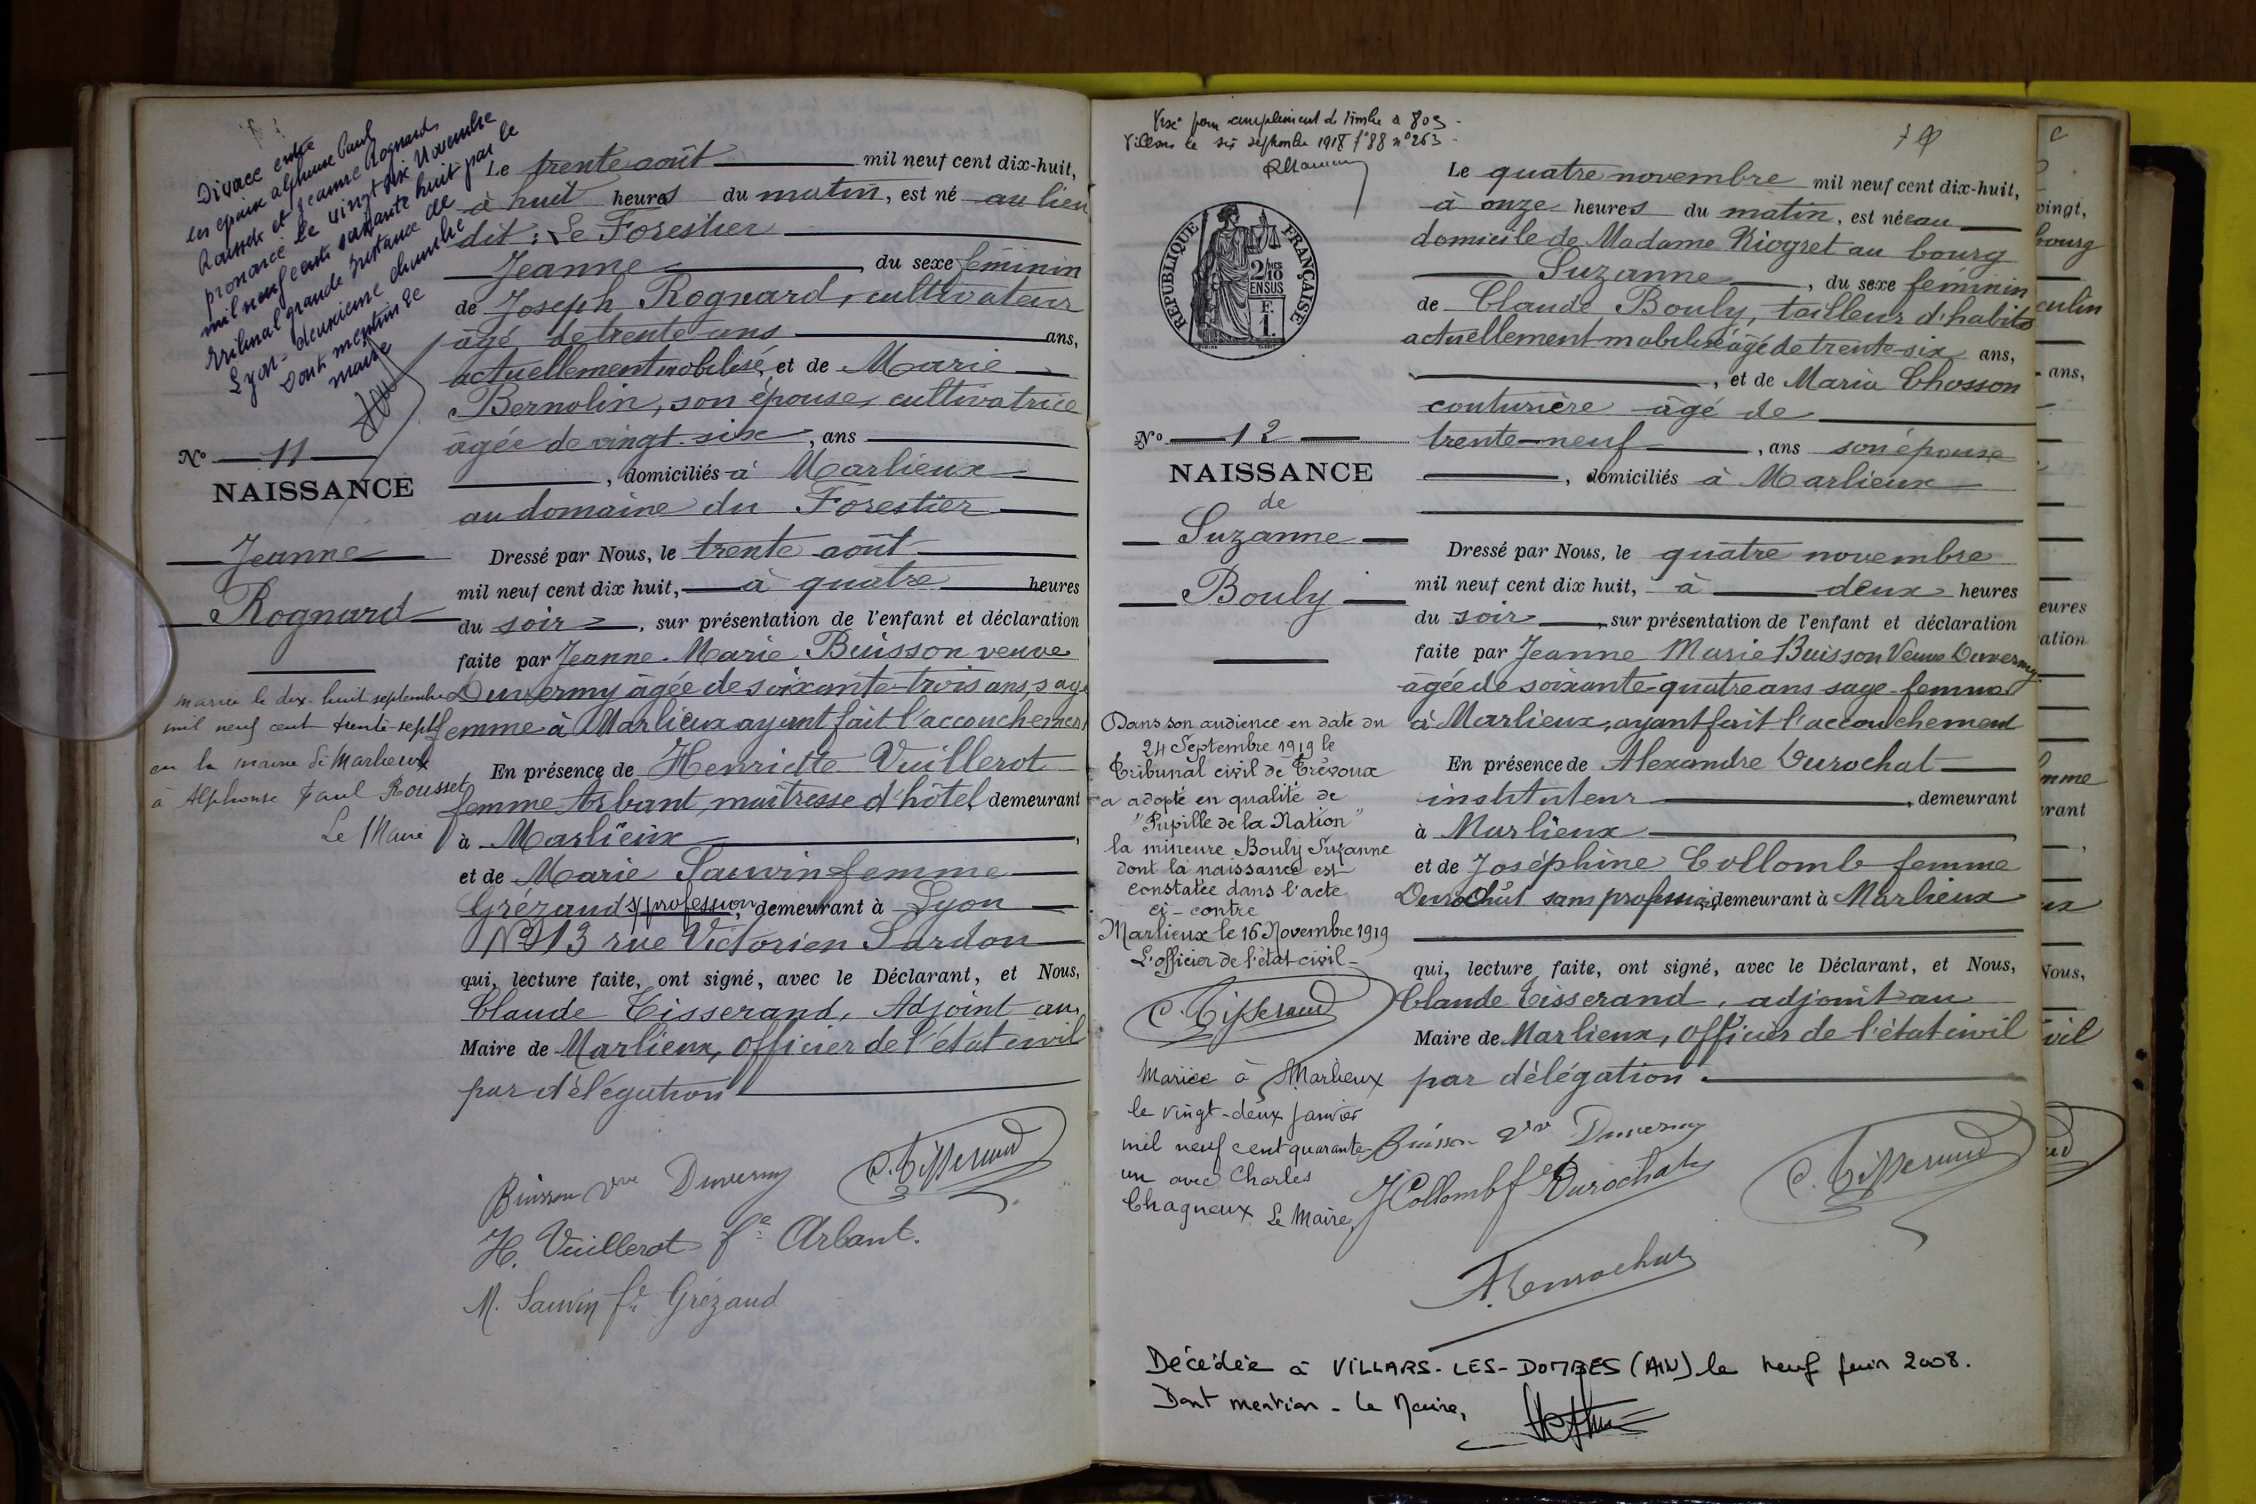 Divorce entre
les époux Alphonse Paul
Rousset et Jeanne Rognard
prononcé le vingt six Novembre
mil neuf cent soixante huit par le
tribunal grande instance de
Lyon - deuxième chambre
Dont mention le
maire
N° 11
NAISSANCE
Jeanne
Rognard
mariée le dix-huit septembre
mil neuf cent trente-sept
en la mairie de Marlieux
à Alphonse Paul Rousset
Le Maire
Le trente août mil neuf cent dix-huit,
à huit heures du matin, est né au lieu
dit : Le Forestier
Jeanne, du sexe féminin
de Joseph Rognard, cultivateur
âgé de trente ans ans,
actuellement mobilisé, et de Marie
Bernolin, son épouse, cultivatrice
âgée de vingt-six, ans
, domiciliés à Marlieux
au domaine du Forestier
Dressé par Nous, le trente août
mil neuf cent dix huit, à quatre heures
du soir, sur présentation de l'enfant et déclaration
faite par Jeanne-Marie Buisson veuve
Duvermy âgée de soixante-trois ans, sage
femme à Marlieux ayant fait l'accouchement
En présence de Henriette Vuillerot
femme Arbant, maîtresse d'hôtel, demeurant
à Marlieux,
et de Marie Sauvin femme
Grézaud s/profession, demeurant à Lyon
N° 13 rue Victorien Sardou
qui, lecture faite, ont signé, avec le Déclarant, et Nous,
Claude Tisserand, Adjoint au
Maire de Marlieux, Officier de l'état civil
par délégation
Buisson vve Duvermy C. Tisserand
H. Vuillerot fe Arbant.
M. Sauvin fe Grézaud
Visé pour complément de timbre à 80c
Villars le six septembre 1918 f° 88 n° 263
RÉPUBLIQUE FRANÇAISE
2/10
EN SUS
F.
1.
N° 12
NAISSANCE
de
Suzanne
Bouly
Dans son audience en date du
24 Septembre 1919 le
Tribunal civil de Trévoux
a adopté en qualité de
"Pupille de la Nation"
la mineure Bouly Suzanne
dont la naissance est
constatée dans l'acte
ci-contre
Marlieux le 16 Novembre 1919
L'officier de l'état civil
C. Tisserand
Mariée à Marlieux
le vingt-deux janvier
mil neuf cent quarante-
un avec Charles
Chagneux Le Maire,
Le quatre novembre mil neuf cent dix-huit,
à onze heures du matin, est née au
domicile de Madame Rioyret au bourg
Suzanne, du sexe féminin
de Claude Bouly, tailleur d'habits
actuellement mobilisé âgé de trente-six ans,
, et de Maria Chosson
couturière âgé de
trente-neuf, ans son épouse
, domiciliés à Marlieux
Dressé par Nous, le quatre novembre
mil neuf cent dix huit, à deux heures
du soir, sur présentation de l'enfant et déclaration
faite par Jeanne Marie Buisson Veuve Duvermy
âgée de soixante-quatre ans sage-femme
à Marlieux, ayant fait l'accouchement
En présence de Alexandre Durochat
instituteur, demeurant
à Marlieux
et de Joséphine Collomb femme
Durochat sans profession, demeurant à Marlieux
qui, lecture faite, ont signé, avec le Déclarant, et Nous,
Claude Tisserand, adjoint au
Maire de Marlieux, Officier de l'état civil
par délégation.
Buisson vve Duvermy
J Collomb fe Durochat C. Tisserand
A. Durochat
Décédée à VILLARS-LES-DOMBES (AIN) le neuf juin 2008.
Dont mention - Le Maire,
vingt,
bourg
culin
ans,
eures
ation
mme
rant
ux
Nous,
vil